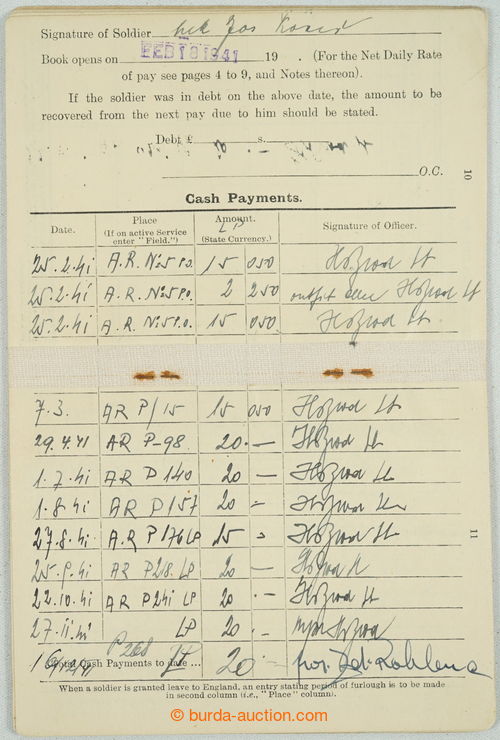 Signature of Soldier
Book opens on FEB 18 1941 19 . (For the Net Daily Rate
of pay see pages 4 to 9, and Notes thereon).
If the soldier was in debt on the above date, the amount to be
recovered from the next pay due to him should be stated.
Debt £ s.
O.C.
10
Cash Payments.
Date. Place (If on active Service enter "Field.") Amount. LP (State Currency.) Signature of Officer.
25.2.41 A.R. No 5 P.O. 15 050
25.2.41 A.R. No 5 P.O. 2 250
25.2.41 A.R. No 5 P.O. 15 050
7.3. AR P/15 15 050
29.4.41 AR P-98 20.—
1.7.41 AR P 140 20 —
1.8.41 AR P 157 20 —
27.8.41 A.R P 176 LP 15
11
25.9.41 AR P 218 LP 20 —
22.10.41 AR P 241 LP 20 —
27.11.41 LP 20.—
P 268 LP 20
Total Cash Payments to date ...
When a soldier is granted leave to England, an entry stating period of furlough is to be made
in second column (i.e., "Place" column).
© burda-auction.com